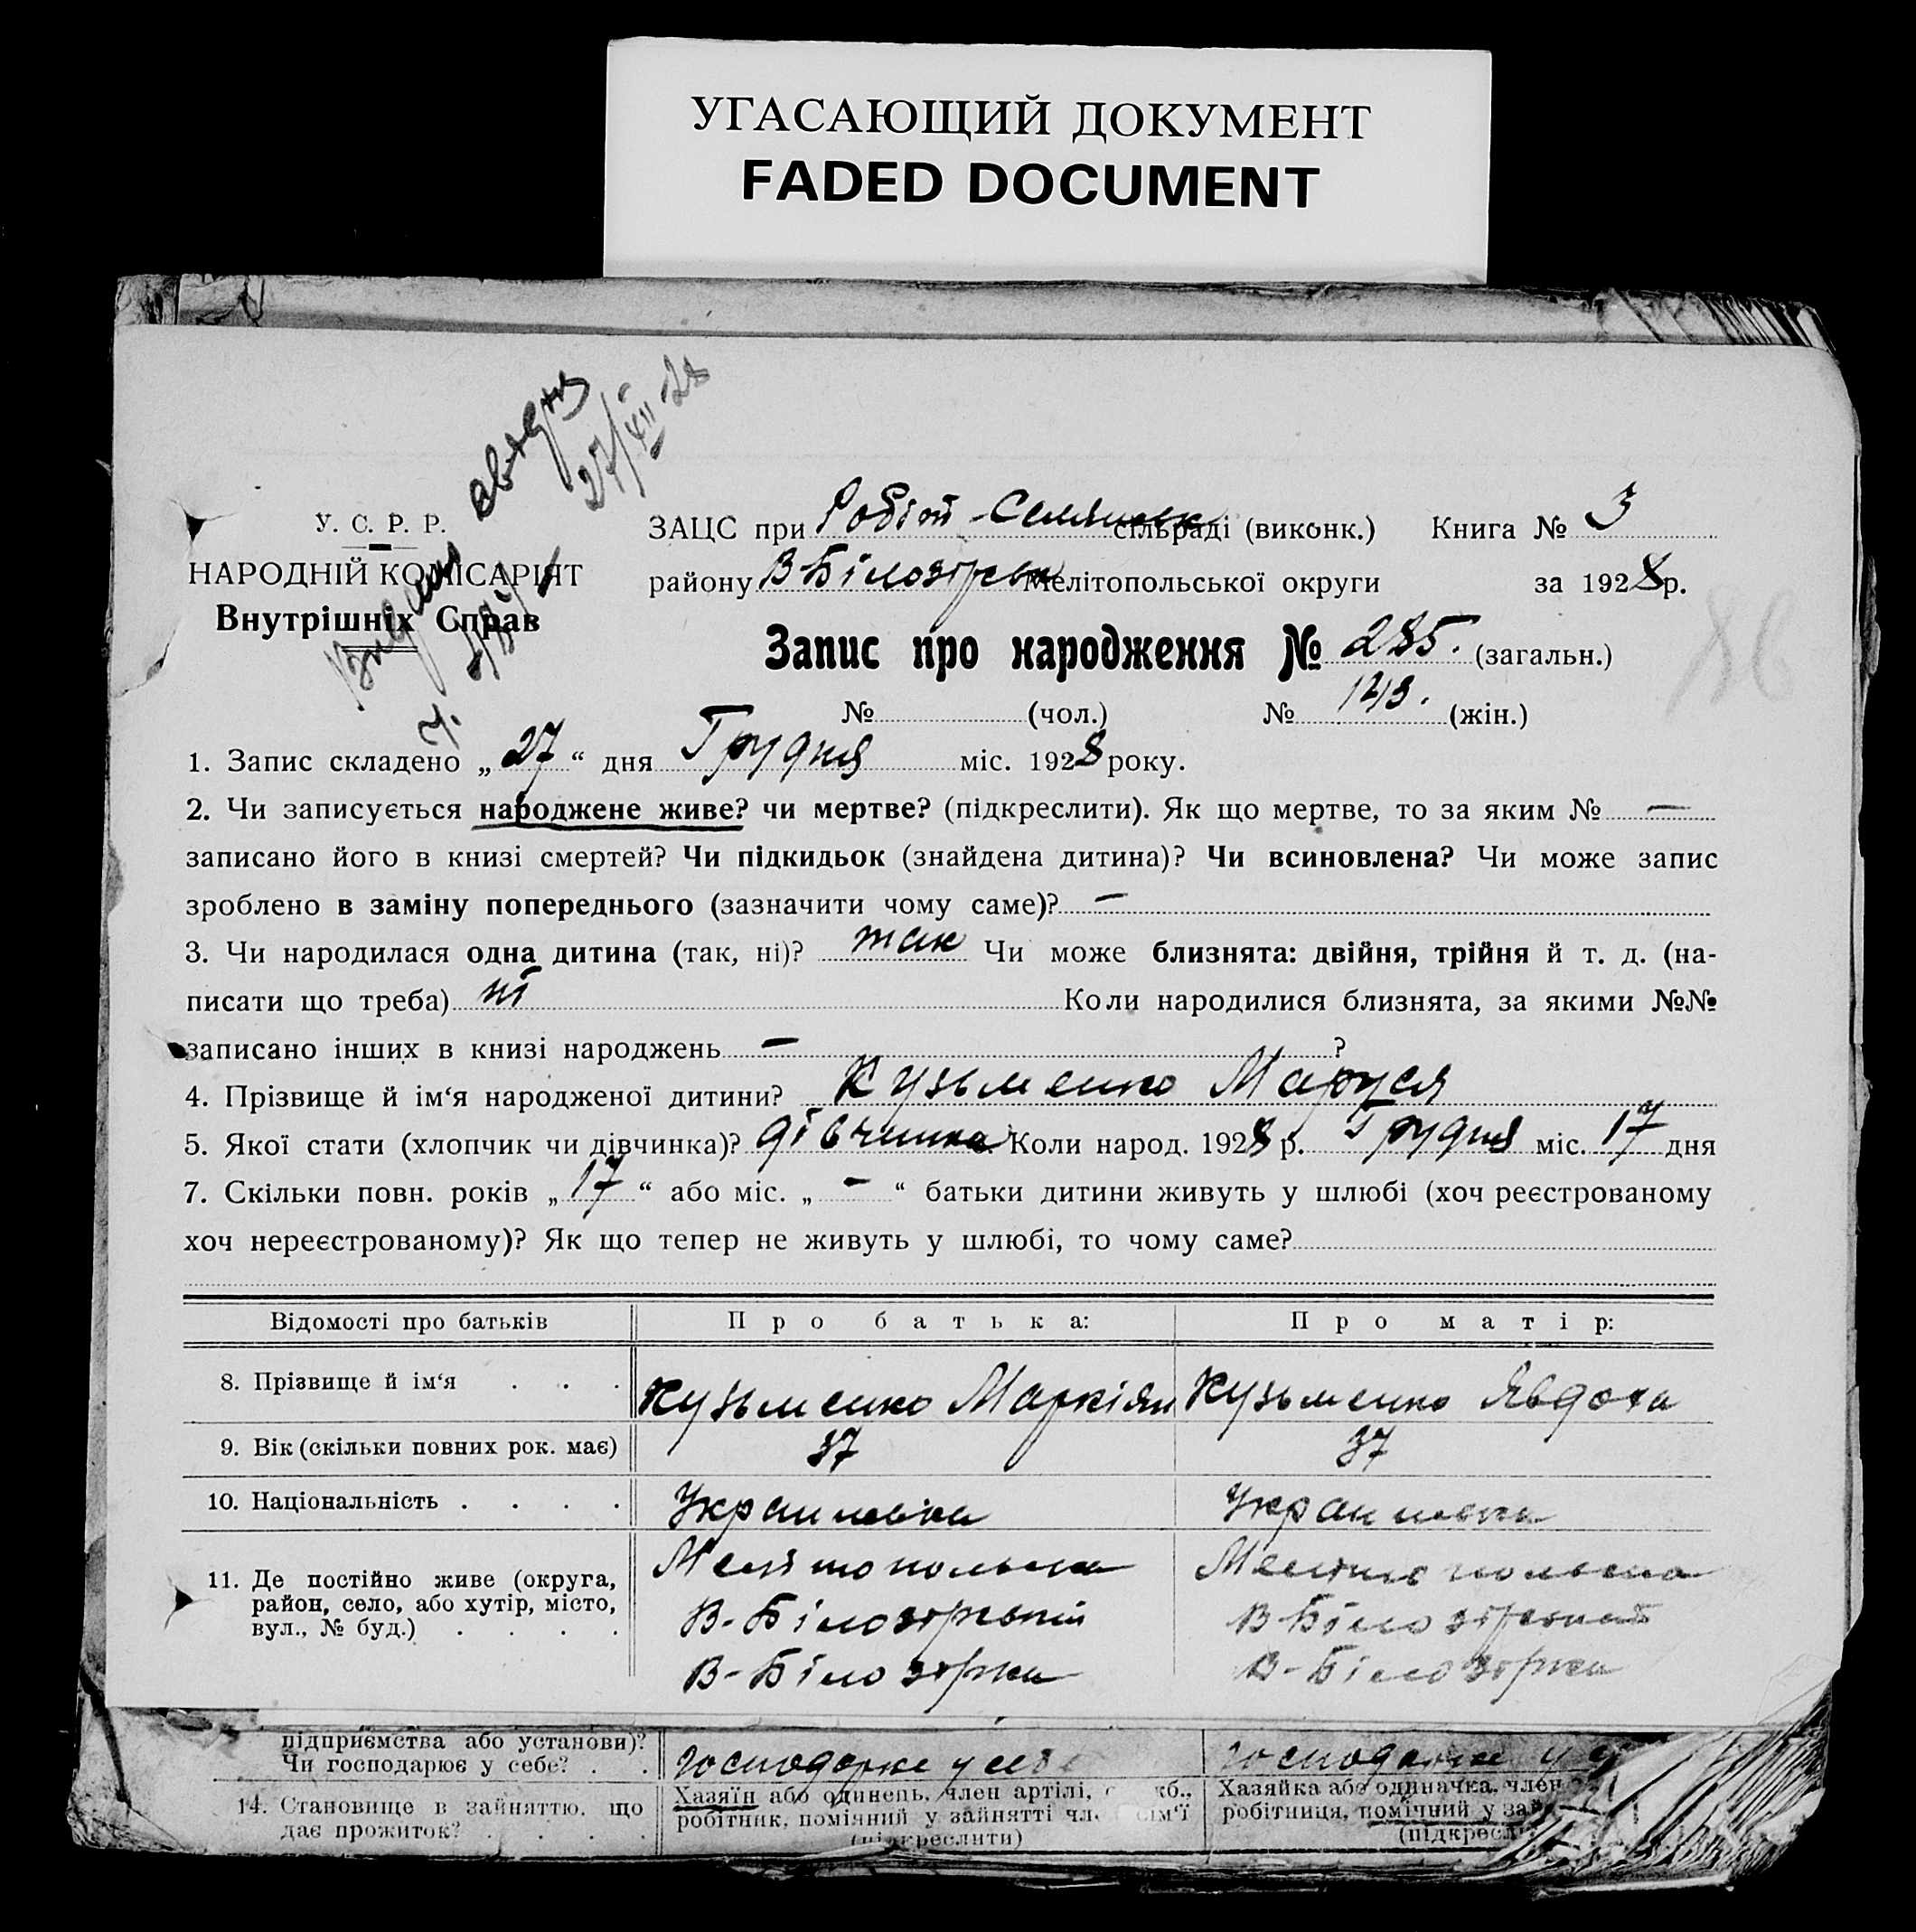 УГАСАЮЩИЙ ДОКУМЕНТ
FADED DOCUMENT
Видано
27/XII-28
У. С. Р. Р.
НАРОДНІЙ КОМІСАРІЯТ
Внутрішніх Справ
ЗАЦС при Робіт-Селянськ сільраді (виконк.) Книга № 3
району В Білозірськ Мелітопольської округи за 1928 р.
Запис про народження № 285. (загальн.)
№ (чол.) № 143. (жін.)
86
1. Запис складено „ 27 “ дня Грудня міс. 1928 року.
2. Чи записується народжене живе? чи мертве? (підкреслити). Як що мертве, то за яким № —
записано його в книзі смертей? Чи підкидьок (знайдена дитина)? Чи всиновлена? Чи може запис
зроблено в заміну попереднього (зазначити чому саме)? —
3. Чи народилася одна дитина (так, ні)? так Чи може близнята: двійня, трійня й т. д. (на-
писати що треба) ні Коли народилися близнята, за якими №№
записано інших в книзі народжень — ?
4. Прізвище й ім‘я народженої дитини? Кузьменко Маруся
5. Якої стати (хлопчик чи дівчинка)? дівчинка Коли народ. 1928 р. Грудня міс. 17 дня
7. Скільки повн. років „ 17 “ або міс. „ – “ батьки дитини живуть у шлюбі (хоч реєстрованому
хоч нереєстрованому)? Як що тепер не живуть у шлюбі, то чому саме?
Відомості про батьків Про батька: Про матір:
8. Прізвище й ім‘я . . . Кузьменко Маркіян Кузьменко Явдоха
9. Вік (скільки повних рок. має) 37 37
10. Національність . . . . Украинська Украинська
11. Де постійно живе (округа, район, село, або хутір, місто, вул., № буд.) . . . .
Мелітопольська Мелітопольська
В-Білозірський В-Білозірський
В-Білозірка В-Білозірка
підприємства або установи)?
Чи господарює у себе? . . Господарює у себе Господарює у
14. Становище в зайняттю, що
дає прожиток? . . . .
Хазяїн або одинець, член артілі, кб.,
робітник, поміяний у зайнятті чл. сім‘ї
(підкреслити)
Хазяйка або одиначка, член
робітниця, помічний у зай
(підкресл